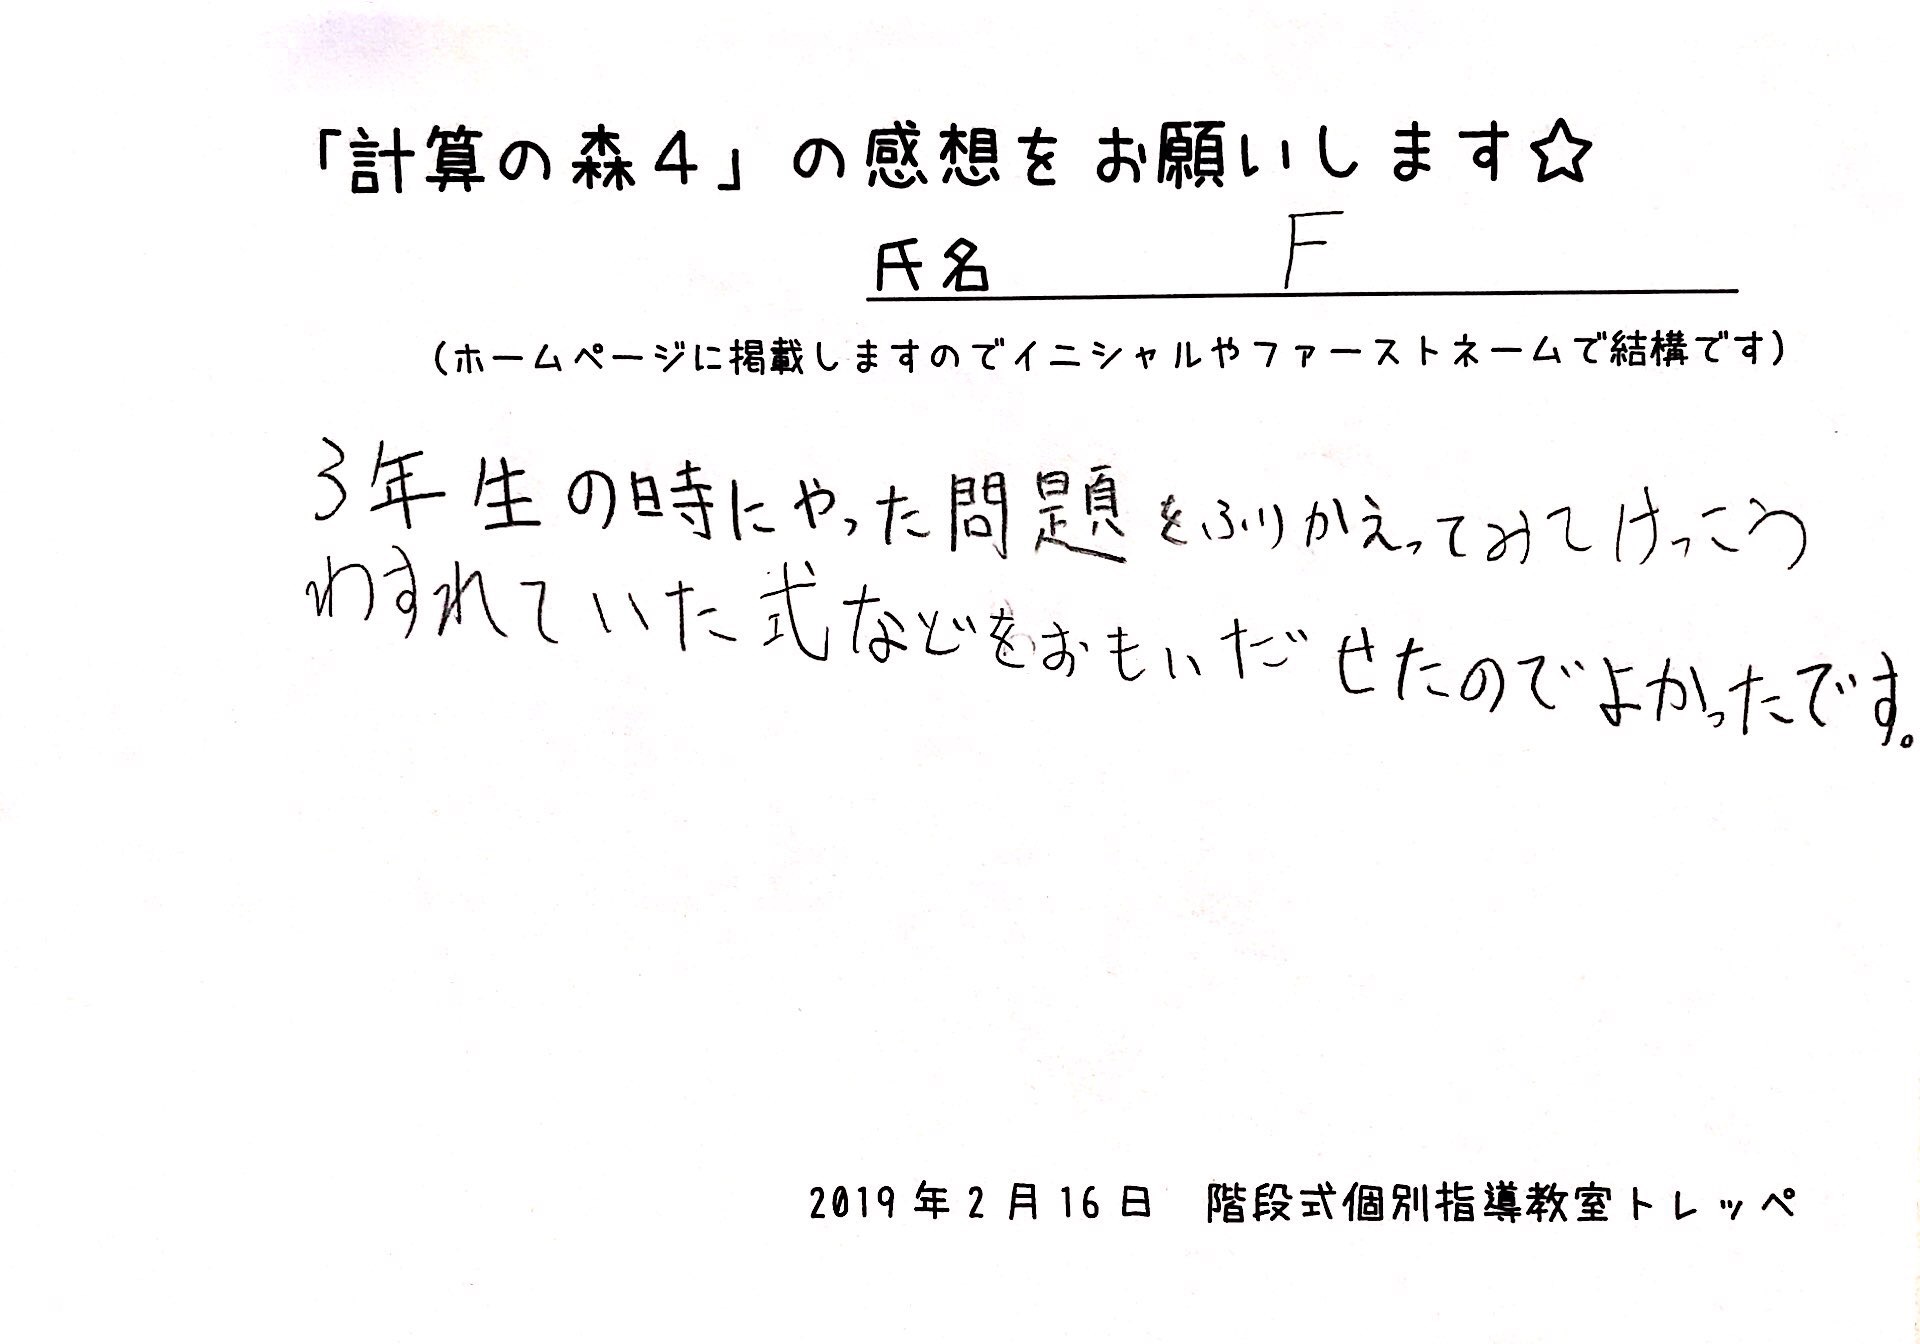 「計算の森４」の感想をお願いします☆
氏名 F
(ホームページに掲載しますのでイニシャルやファーストネームで結構です)
3年生の時にやった問題をふりかえってみてけっこう
わすれていた式などをおもいだせたのでよかったです。
2019年2月16日 階段式個別指導教室トレッペ